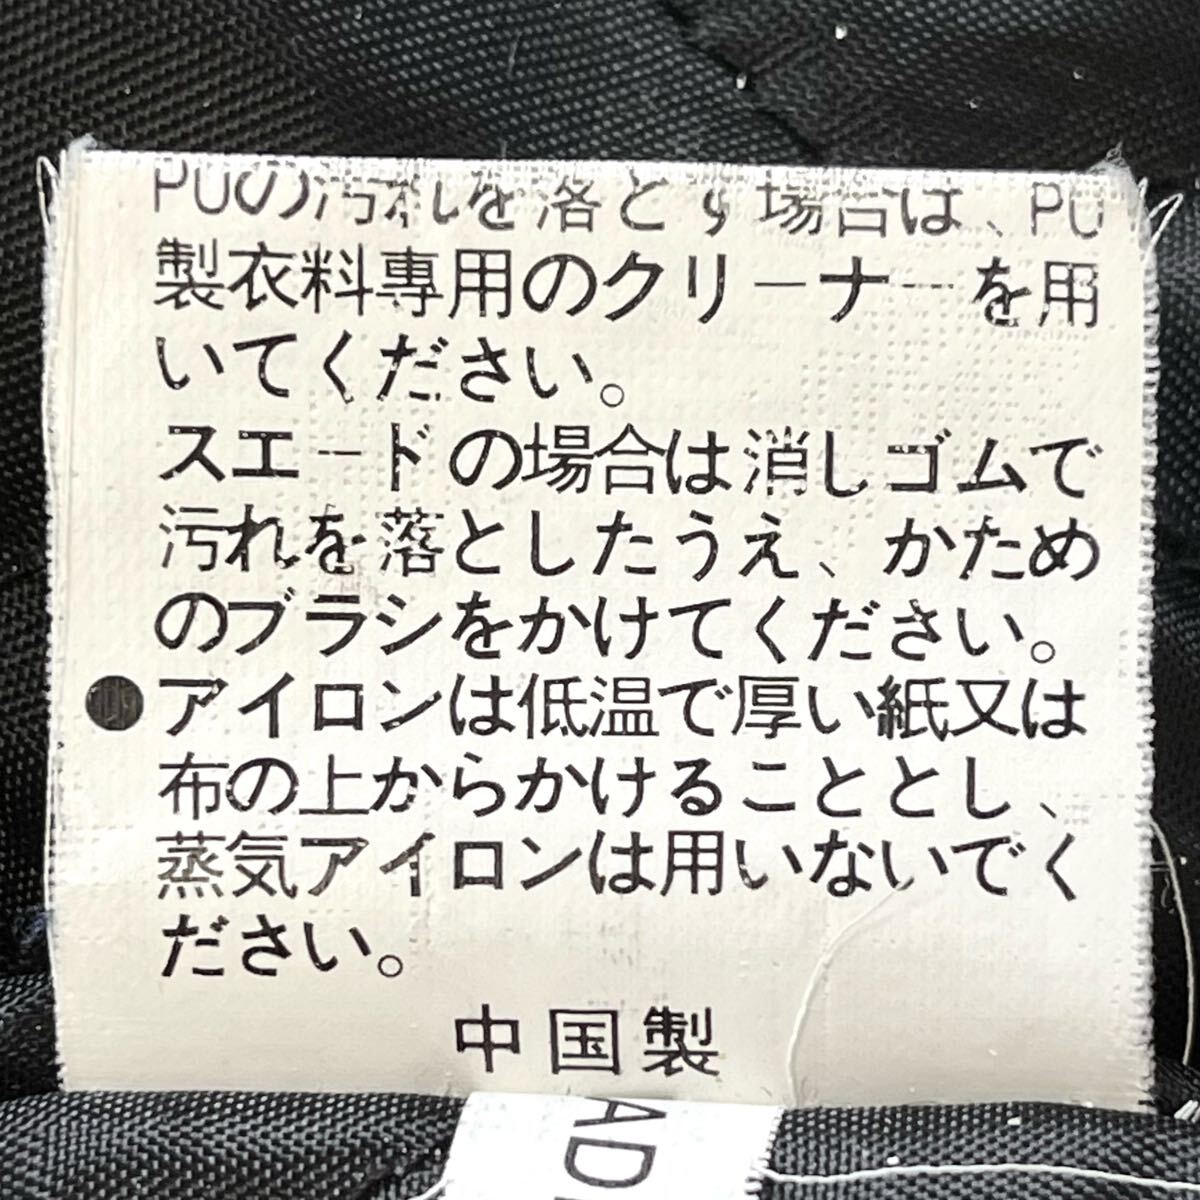 PUの汚れを落とす場合は、PU
製衣料専用のクリーナーを用
いてください。
スエードの場合は消しゴムで
汚れを落としたうえ、かため
のブラシをかけてください。
●アイロンは低温で厚い紙又は
布の上からかけることとし、
蒸気アイロンは用いないでく
ださい。
中国製
AD